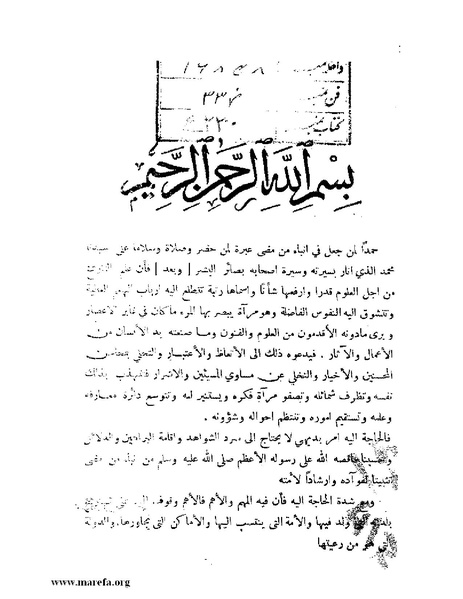 داخله نمبر
فن نمبر
کتاب نمبر
بسم الله الرحمن الرحيم
حمداً لمن جعل في انباء من مضى عبرة لمن حضر وصلاة وسلاما على سيدنا
محمد الذي انار بسيرته وسيرة اصحابه بصائر البشر [ وبعد ] فأن علم التاريخ
من اجل العلوم قدرا وارفعها شأنًا واسماها رتبة تتطلع اليه ارباب الهمم العالية
وتتشوق اليه النفوس الفاضلة وهو مرآة يبصر بها المرء ما كان في غابر الأعصار
ويرى مادونه الأقدمون من العلوم والفنون وما صنعته يد الأنسان من
الأعمال والآثار . فيدعوه ذلك الى الأتعاظ والأعتبار والتحلي بمحاسن
المحسنين والأخيار والتخلي عن مساوي المسيئين والاشرار فتتهذب بذلك
نفسه وتظرف شمائله وتصفو مرآة فكره ويستنير لبه وتتوسع دائرة معارفه
وعلمه وتستقيم اموره وتنتظم احواله وشؤونه .
فالحاجة اليه امر بديهي لا يحتاج الى سرد الشواهد واقامة البراهين والدلائل
وحسبنا ماقصه الله على رسوله الأعظم صلى الله عليه وسلم من نبأ من مضى
تثبيتا لفوآده وارشاداً لأمته
ومع شدة الحاجة اليه فأن فيه المهم والأهم فالأهم وقوف الـ على تاريخ
بلدته التي ولد فيها والأمة التي ينتسب اليها والأماكن التى يجاورها والدولة
التي هو من رعيتها
www.marefa.org